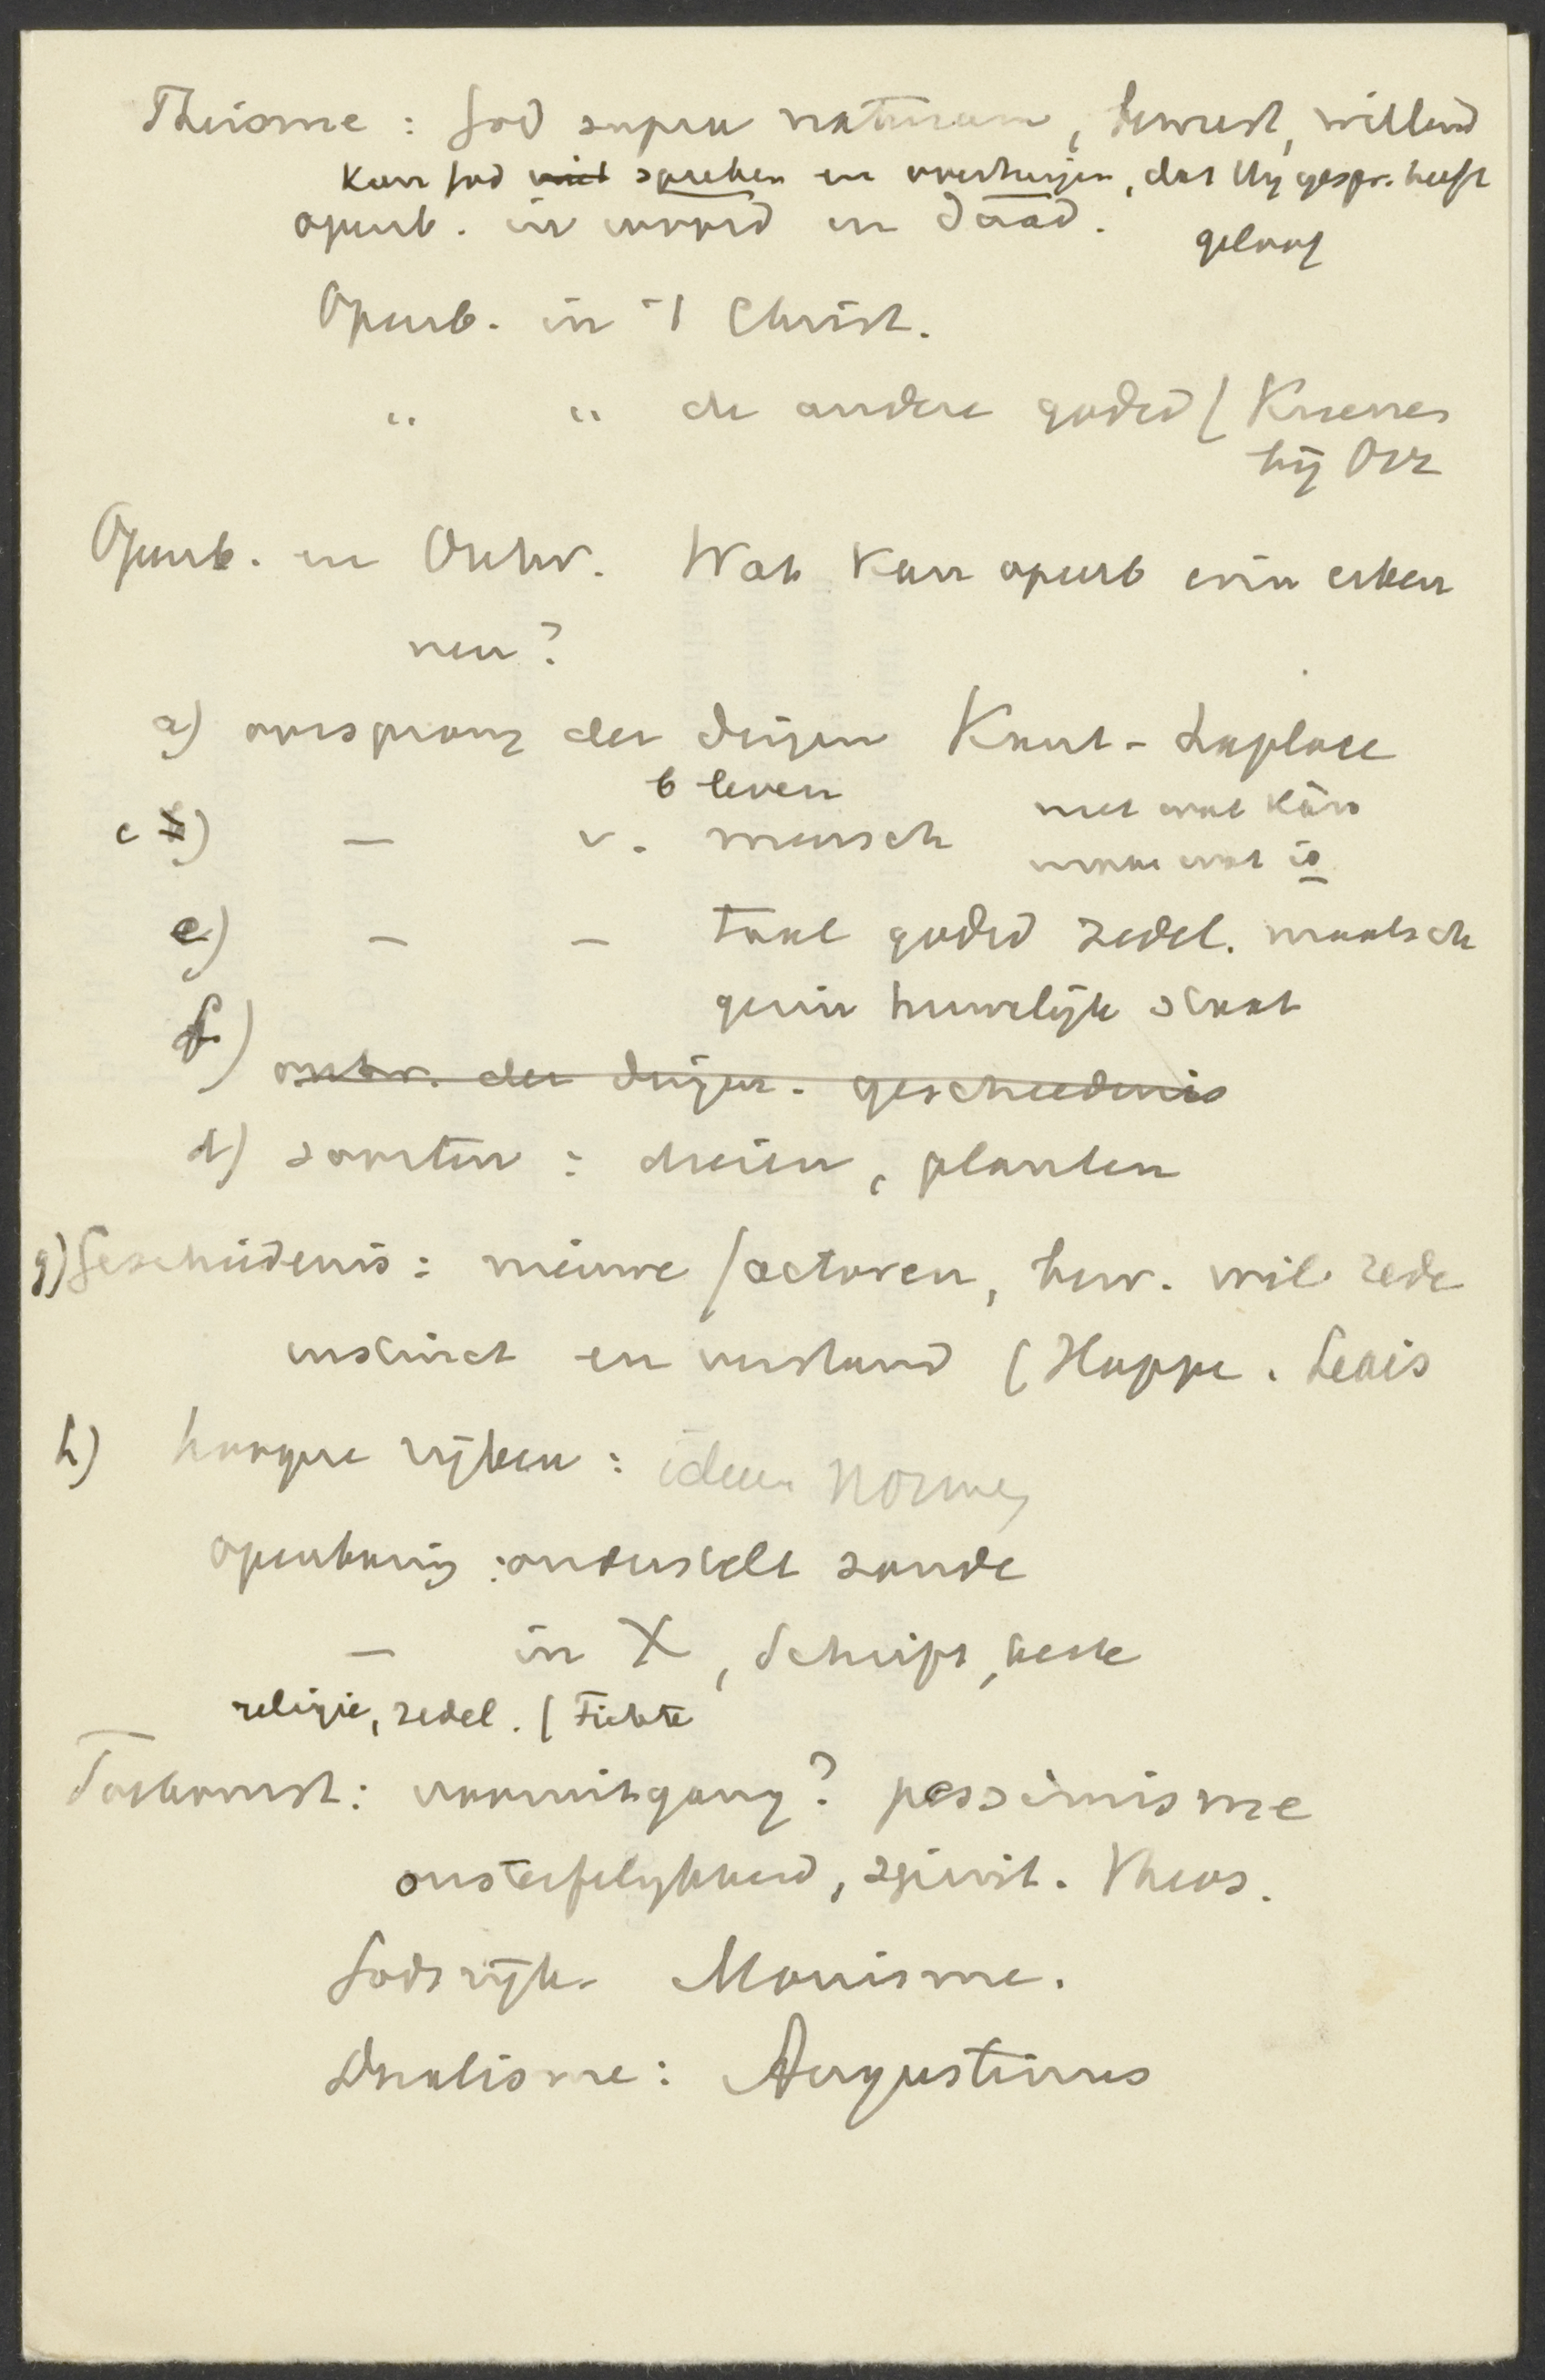 Theisme : God supra naturam, bewust, willend
Kan God niet spreken en overtuigen, dat Hij gespr. heeft
openb. in woord en daad. geloof
Openb. in 't Christ.
" " de andere godsd (Kuenen
bij Orr
Openb. en Ontw. Wat kan openb erin erken
nen?
a) oorsprong der dingen Kant - Laplace
b leven
niet wat kán
c b) — v. mensch
maar wat is
e) — — taal godsd zedel. maatsch
gezin huwelijk staat
f) ontw. der dingen. geschiedenis
d) soorten : dieren, planten
g) Geschiedenis : nieuwe factoren, bew. wil rede
instinct en verstand (Hoppe.
h) hoogere rijken : ideeën normen
openbaring : onderstelt zonde
— in X, Schrift, kerk
religie, zedel. (Fichte
Toekomst : vooruitgang? pessimisme
onsterfelijkheid, spirit. Theos.
Godsrijk. Monisme.
Dualisme : Augustinus